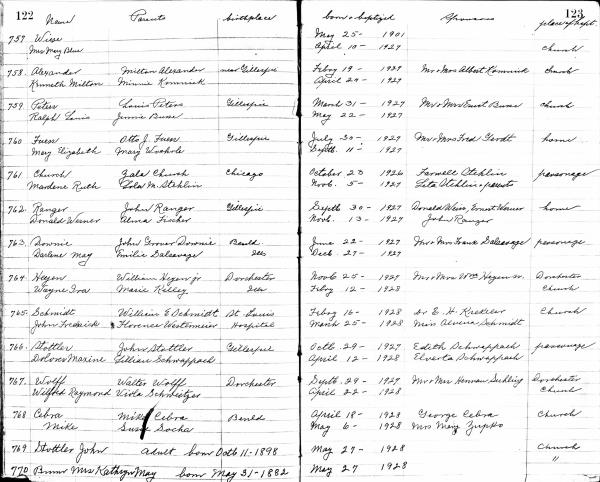 122 Name Parents birthplace born & baptized Sponsors place of bapt. 123
757. Wiese May 25 - 1901
Mrs May Blue April 10 - 1927 church
758. Alexander Milton Alexander near Gillespie Febry 19 - 1927 Mr & Mrs Albert Komnick church
Kenneth Milton Minnie Komnick April 24 - 1927
759. Peters Louis Peters Gillespie March 31 - 1927 Mr & Mrs Ernst Buse church
Ralph Louis Jennie Buse May 22 - 1927
760 Fuess Otto J. Fuess Gillespie July 30 - 1927 Mr & Mrs Fred Gerdt home
Mary Elizabeth Mary Septb. 11 - 1927
761. Church Church Chicago October 23 1926 Farwell Stehlin parsonage
Mardene Ruth Lola M. Stehlin Novb. 5 - 1927 Stehlin - parents
762. Ranger John Ranger Gillespie Septb 30 - 1927 Donald Weiss, Ernest Werner home
Donald Werner Alma Fischer Novb. 13 - 1927 John Ranger
763. Downie John Grover Downie Benld June 22 - 1927 Mr & Mrs Frank Dalsavage parsonage
Darlene May Emilie Dalsavage Ills Decb. 27 - 1927
764. Heyen William Heyen jr Dorchester Novb 25 - 1927 Mr & Mrs Wm Heyen sr. Dorchester
Wayne Ira Marie Kelley Ills Febry 12 - 1928 Church
765. Schmidt William E Schmidt St. Louis Febry 16 - 1928 Dr E. H. Church
John Frederick Florence Westermeier Hospital March 25 - 1928 Miss Alvena Schmidt
766. Stottler John Stottler Gillespie Octb. 29 - 1927 Edith Schwappach parsonage
Dolores Maxine Lillian Schwappach April 12 - 1928 Elverta Schwappach
767. Wolff Walter Wolff Dorchester Septb. 29 - 1927 Mr & Mrs Herman Dorchester
Wilford Raymond Viola Schweitzer April 22 - 1928 Church
768 Cebra Mike Cebra Benld April 18 - 1928 George Cebra Church
Mike Susie Socha May 6 - 1928 Mrs Mary Zupko
769 Stottler John Adult born Octb 11 - 1898 May 27 - 1928 Church
770 Mrs Kathryn May born May 31 - 1882 May 27 1928 "